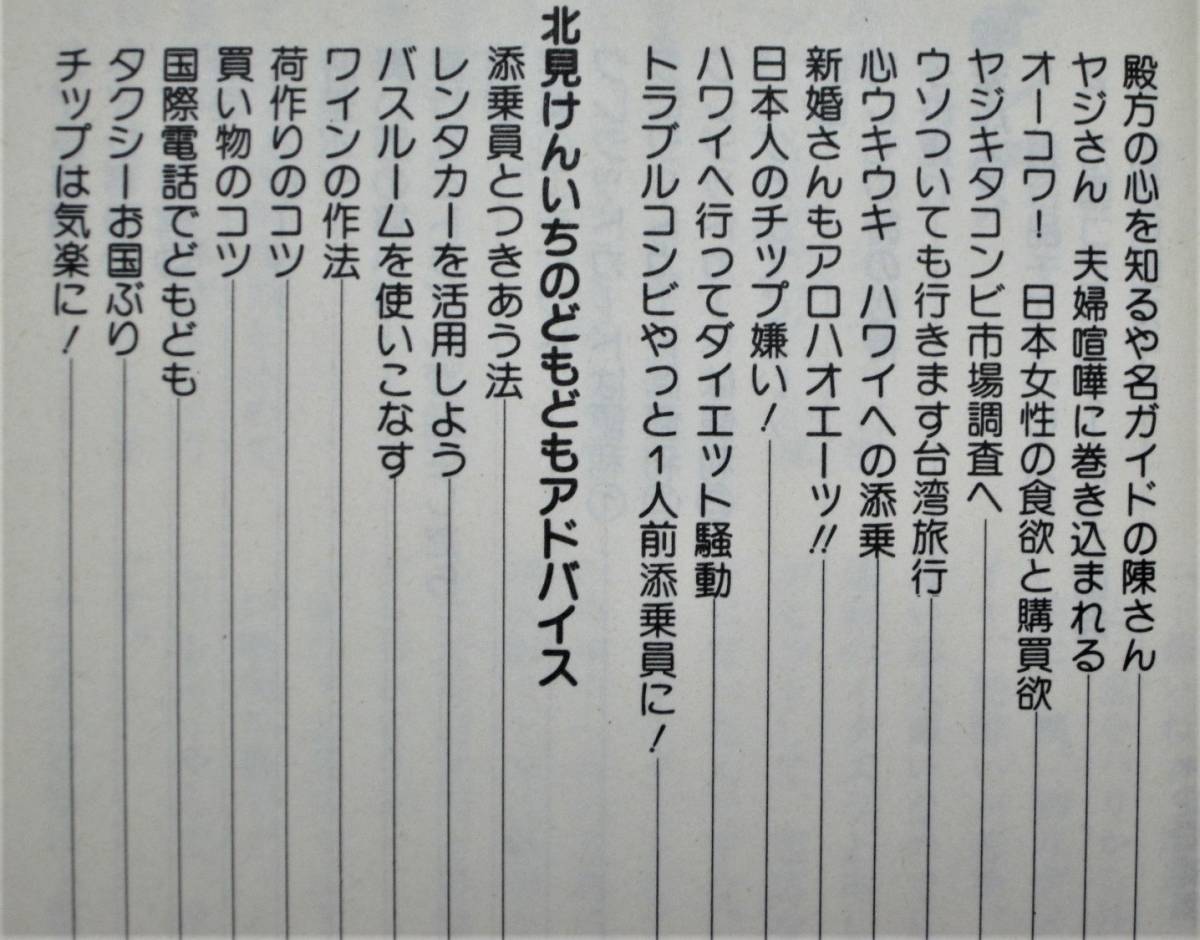 殿方の心を知るや名ガイドの陳さん
ヤジさん　夫婦喧嘩に巻き込まれる
オーコワ！　日本女性の食欲と購買欲
ヤジキタコンビ市場調査へ
ウソついても行きます台湾旅行
心ウキウキ　ハワイへの添乗
新婚さんもアロハオエーッ!!
日本人のチップ嫌い！
ハワイへ行ってダイエット騒動
トラブルコンビやっと1人前添乗員に！
北見けんいちのどもどもアドバイス
添乗員とつきあう法
レンタカーを活用しよう
バスルームを使いこなす
ワインの作法
荷作りのコツ
買い物のコツ
国際電話でどもども
タクシーお国ぶり
チップは気楽に！